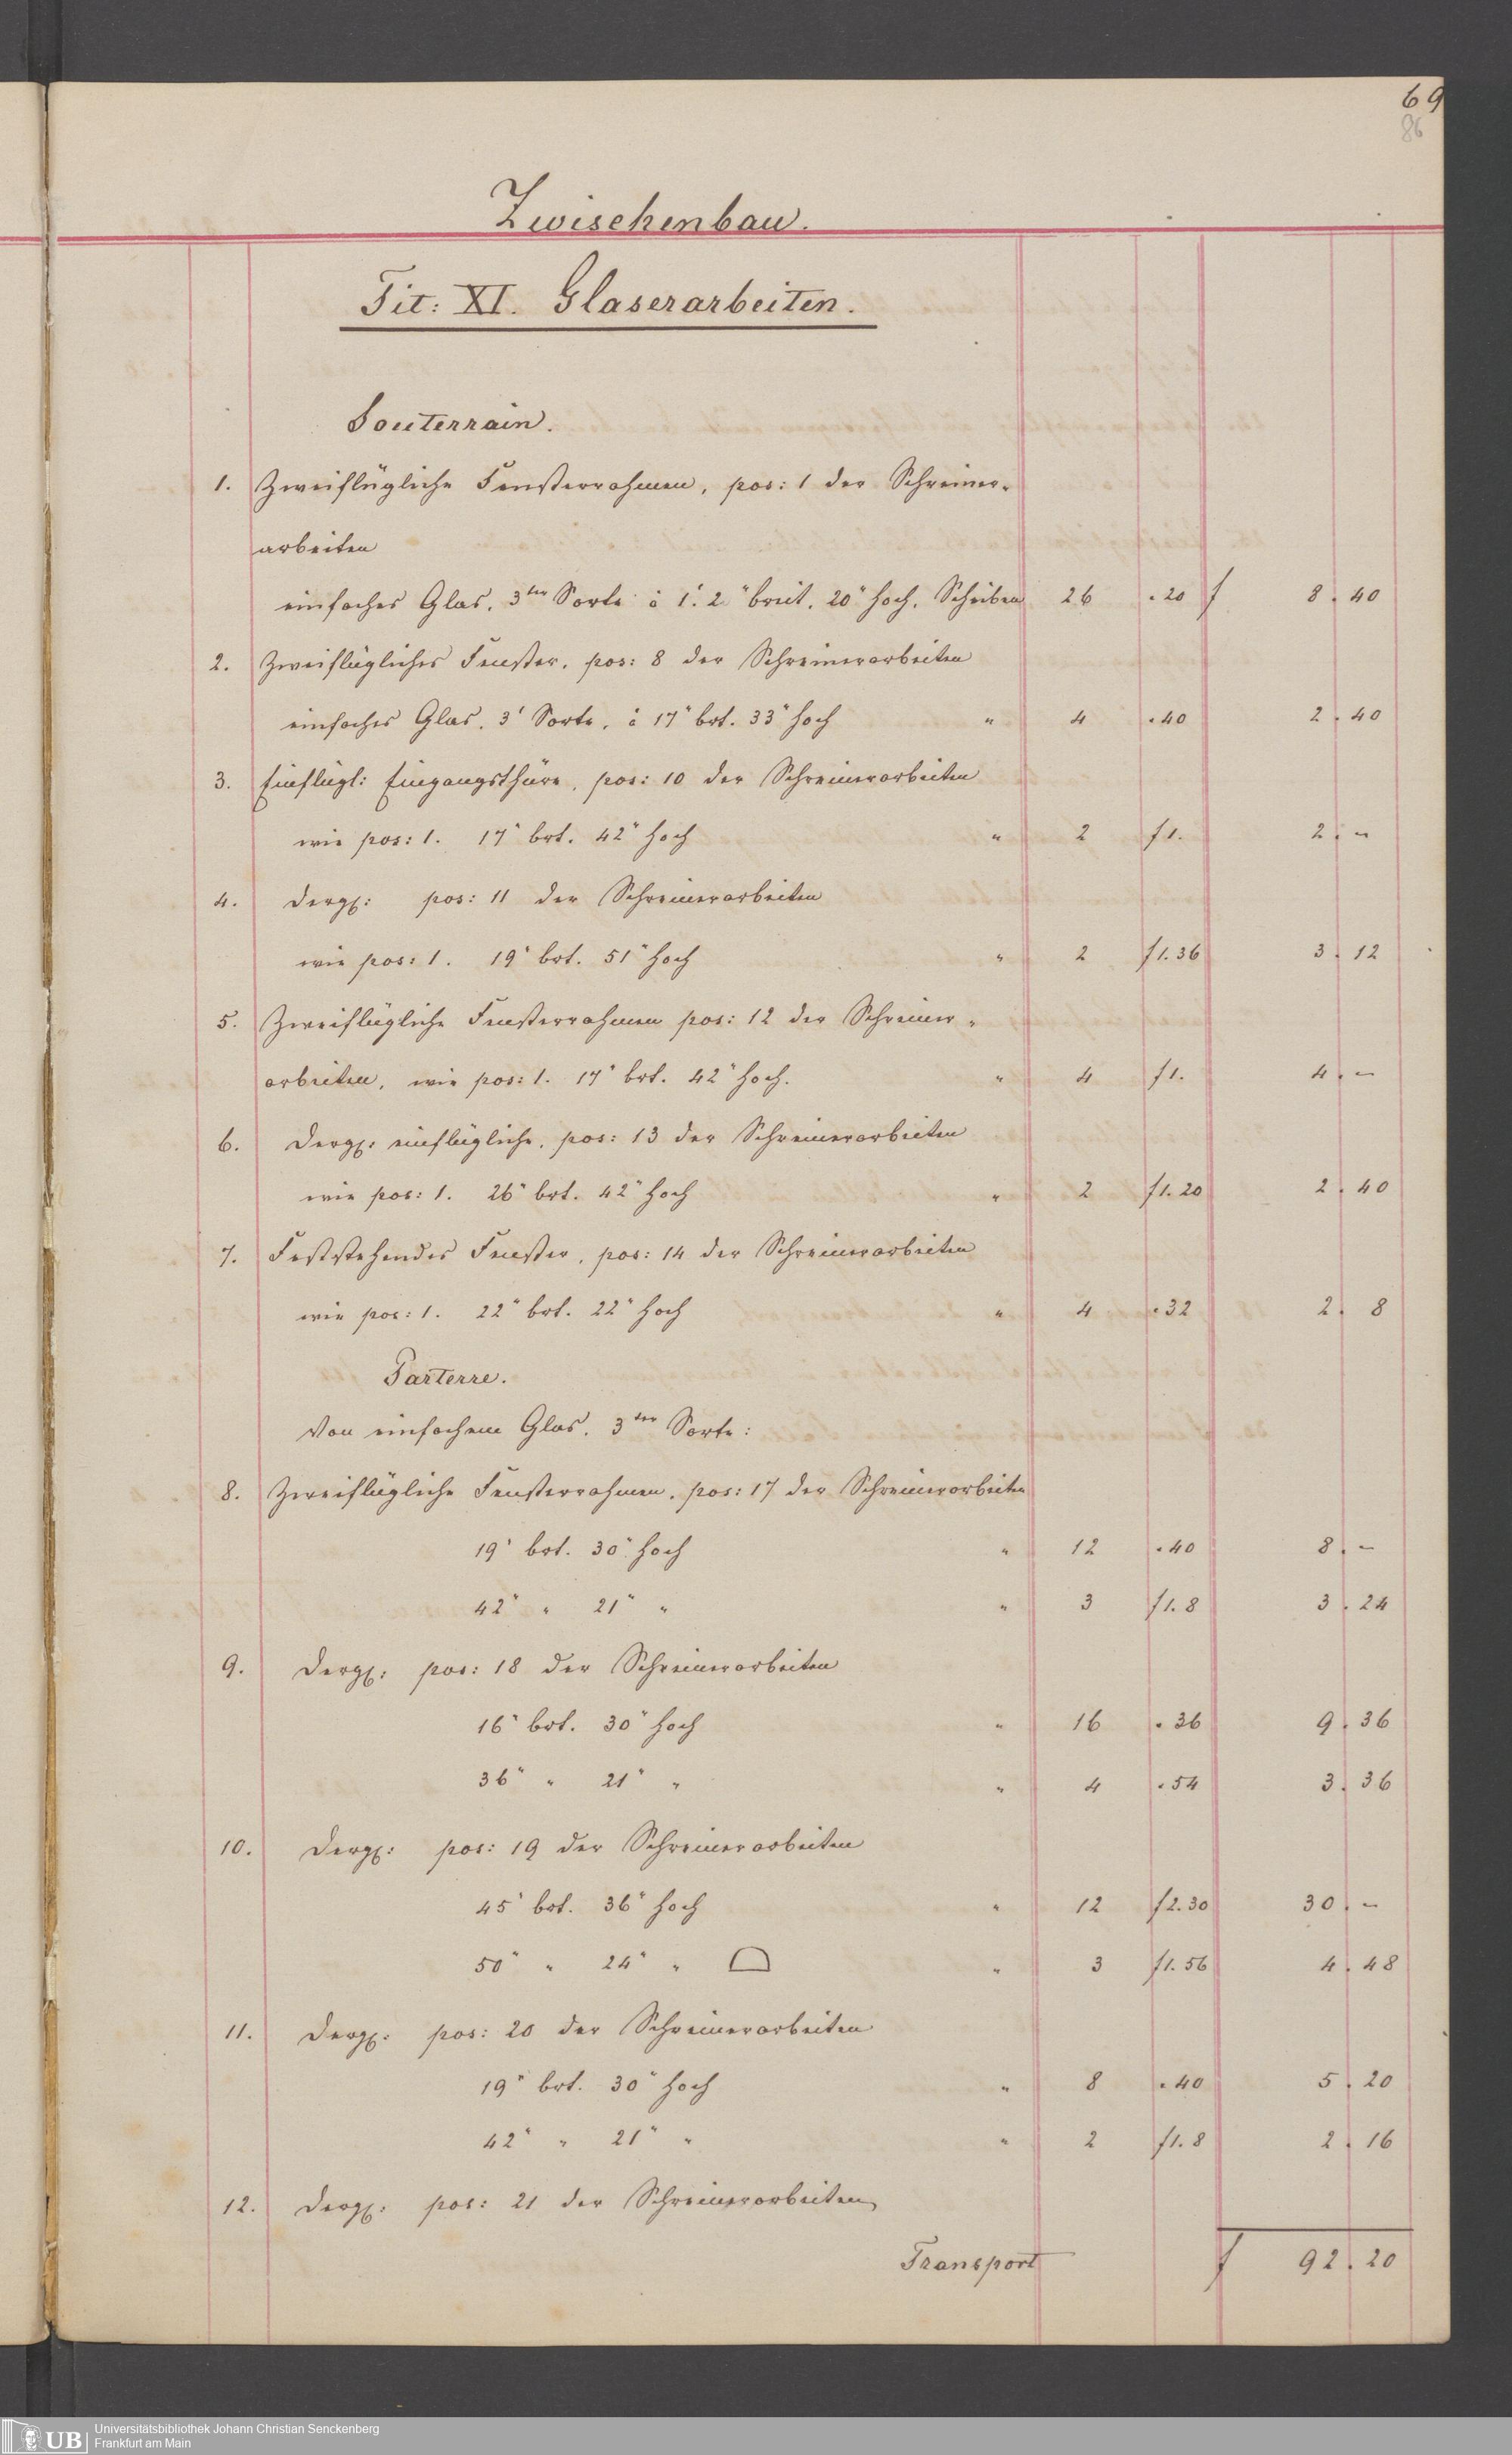 69
86
Zwischenbau.
Tit: XI. Glaserarbeiten.
Souterrain.
1. Zweiflügliche Fensterrahmen, pos: 1 der Schreiner-
arbeiten
einfaches Glas, 3ter Sorte à 1.' 2" breit, 20" hoch, Scheiben 26 " 20 f 8. 40
2. Zweiflügliches Fenster, pos: 8 der Schreinerarbeiten
einfaches Glas, 3r Sorte, à 17" brt. 33" hoch " 4 " 40 2. 40
3. Einflügl: Eingangsthüre, pos: 10 der Schreinerarbeiten
wie pos: 1. 17" brt. 42" hoch " 2 f 1. 2. -
4. dergl: pos: 11 der Schreinerarbeiten
wie pos: 1. 19" brt. 51" hoch " 2 f 1. 36 3. 12
5. Zweiflügliche Fensterrahmen pos: 12 der Schreiner-
arbeiten, wie pos: 1. 17" brt. 42" hoch. " 4 f 1. 4. -
6. dergl: einflügliche, pos: 13 der Schreinerarbeiten
wie pos: 1. 26" brt. 42" hoch " 2 f 1. 20 2. 40
7. Feststehendes Fenster, pos: 14 der Schreinerarbeiten
wie pos: 1. 22" brt. 22" hoch " 4 " 32 2. 8
Parterre.
Von einfachem Glas, 3ter Sorte:
8. Zweiflügliche Fensterrahmen, pos: 17 der Schreinerarbeiten
19" brt. 30" hoch " 12 " 40 8. -
42" " 21" " " 3 f 1. 8 3. 24
9. dergl: pos: 18 der Schreinerarbeiten
16" brt. 30" hoch " 16 " 36 9. 36
36" " 21" " " 4 " 54 3. 36
10. dergl: pos: 19 der Schreinerarbeiten
45" brt. 36" hoch " 12 f 2. 30 30. -
50" " 24" " " 3 f 1. 56 4. 48
11. dergl: pos: 20 der Schreinerarbeiten
19" brt. 30" hoch " 8 " 40 5. 20
42" " 21" " " 2 f 1. 8 2. 16
12. dergl: pos: 21 der Schreinerarbeiten
Transport f 92. 20
UB Universitätsbibliothek Johann Christian Senckenberg
Frankfurt am Main